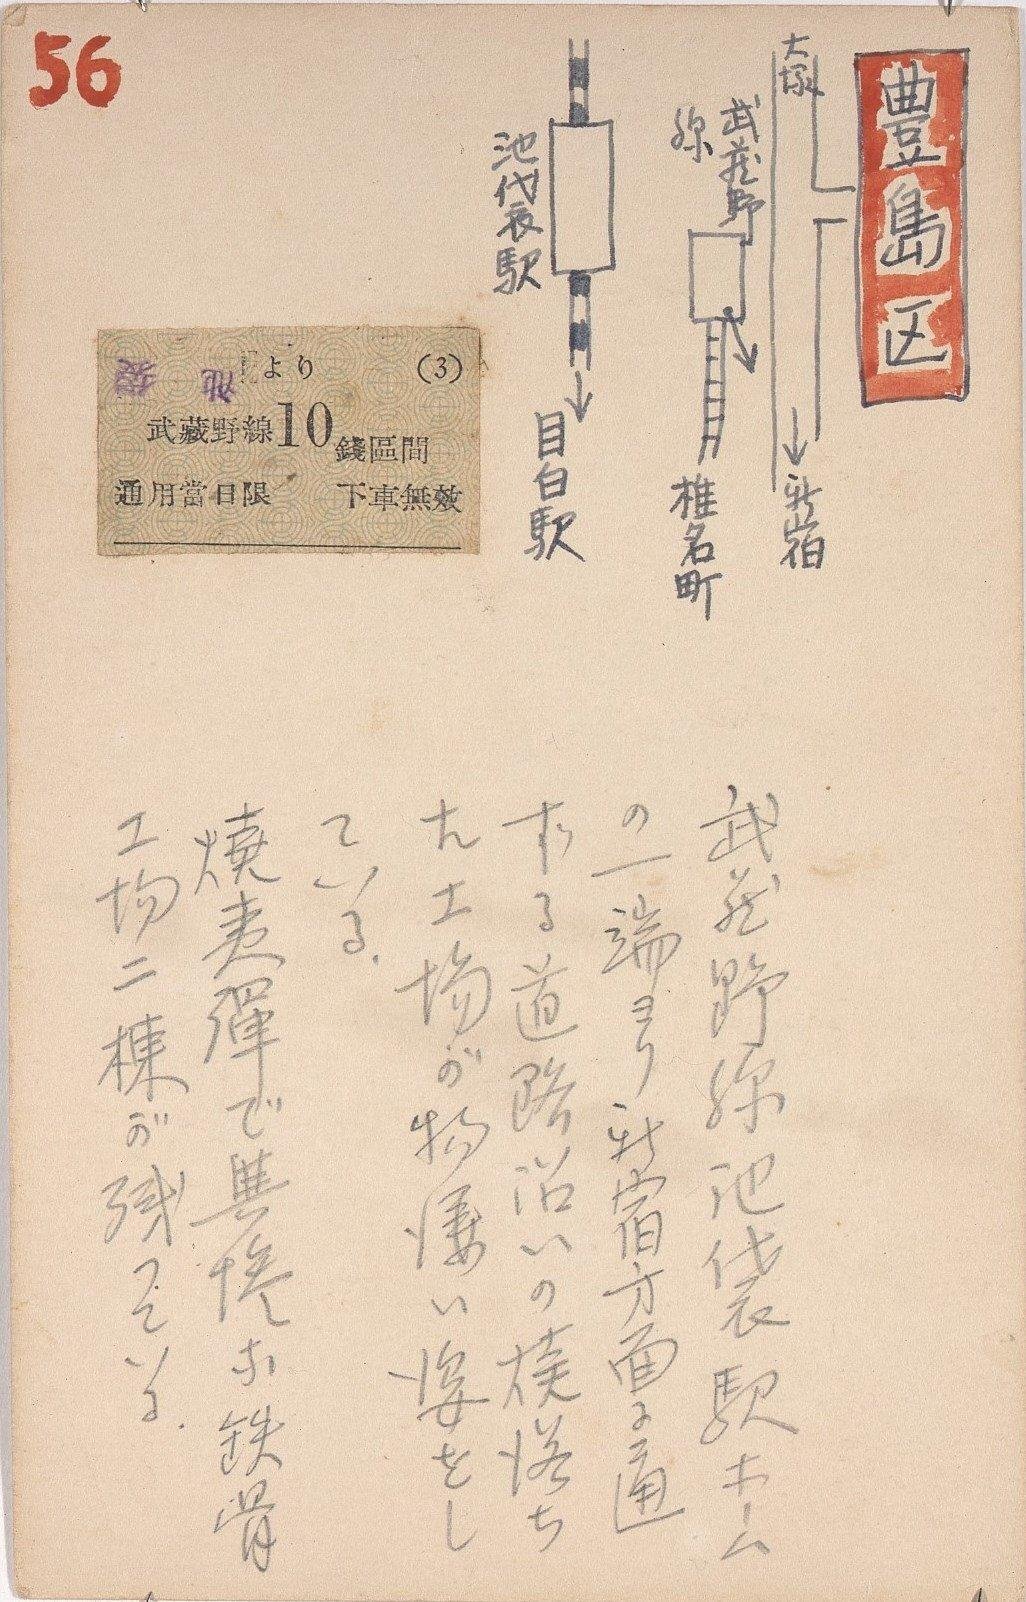 56
豊島区
大塚
新宿
武蔵野
線
椎名町
池袋駅
目白駅
池袋 より (3)
武蔵野線10錢區間
通用當日限 下車無效
武蔵野線池袋駅ホーム
の一端ヨリ新宿方面に通
ずる道路沿いの焼落ち
た工場が物凄い姿をし
ている.
焼夷彈で無惨な鉄骨
工場二棟が残っている.